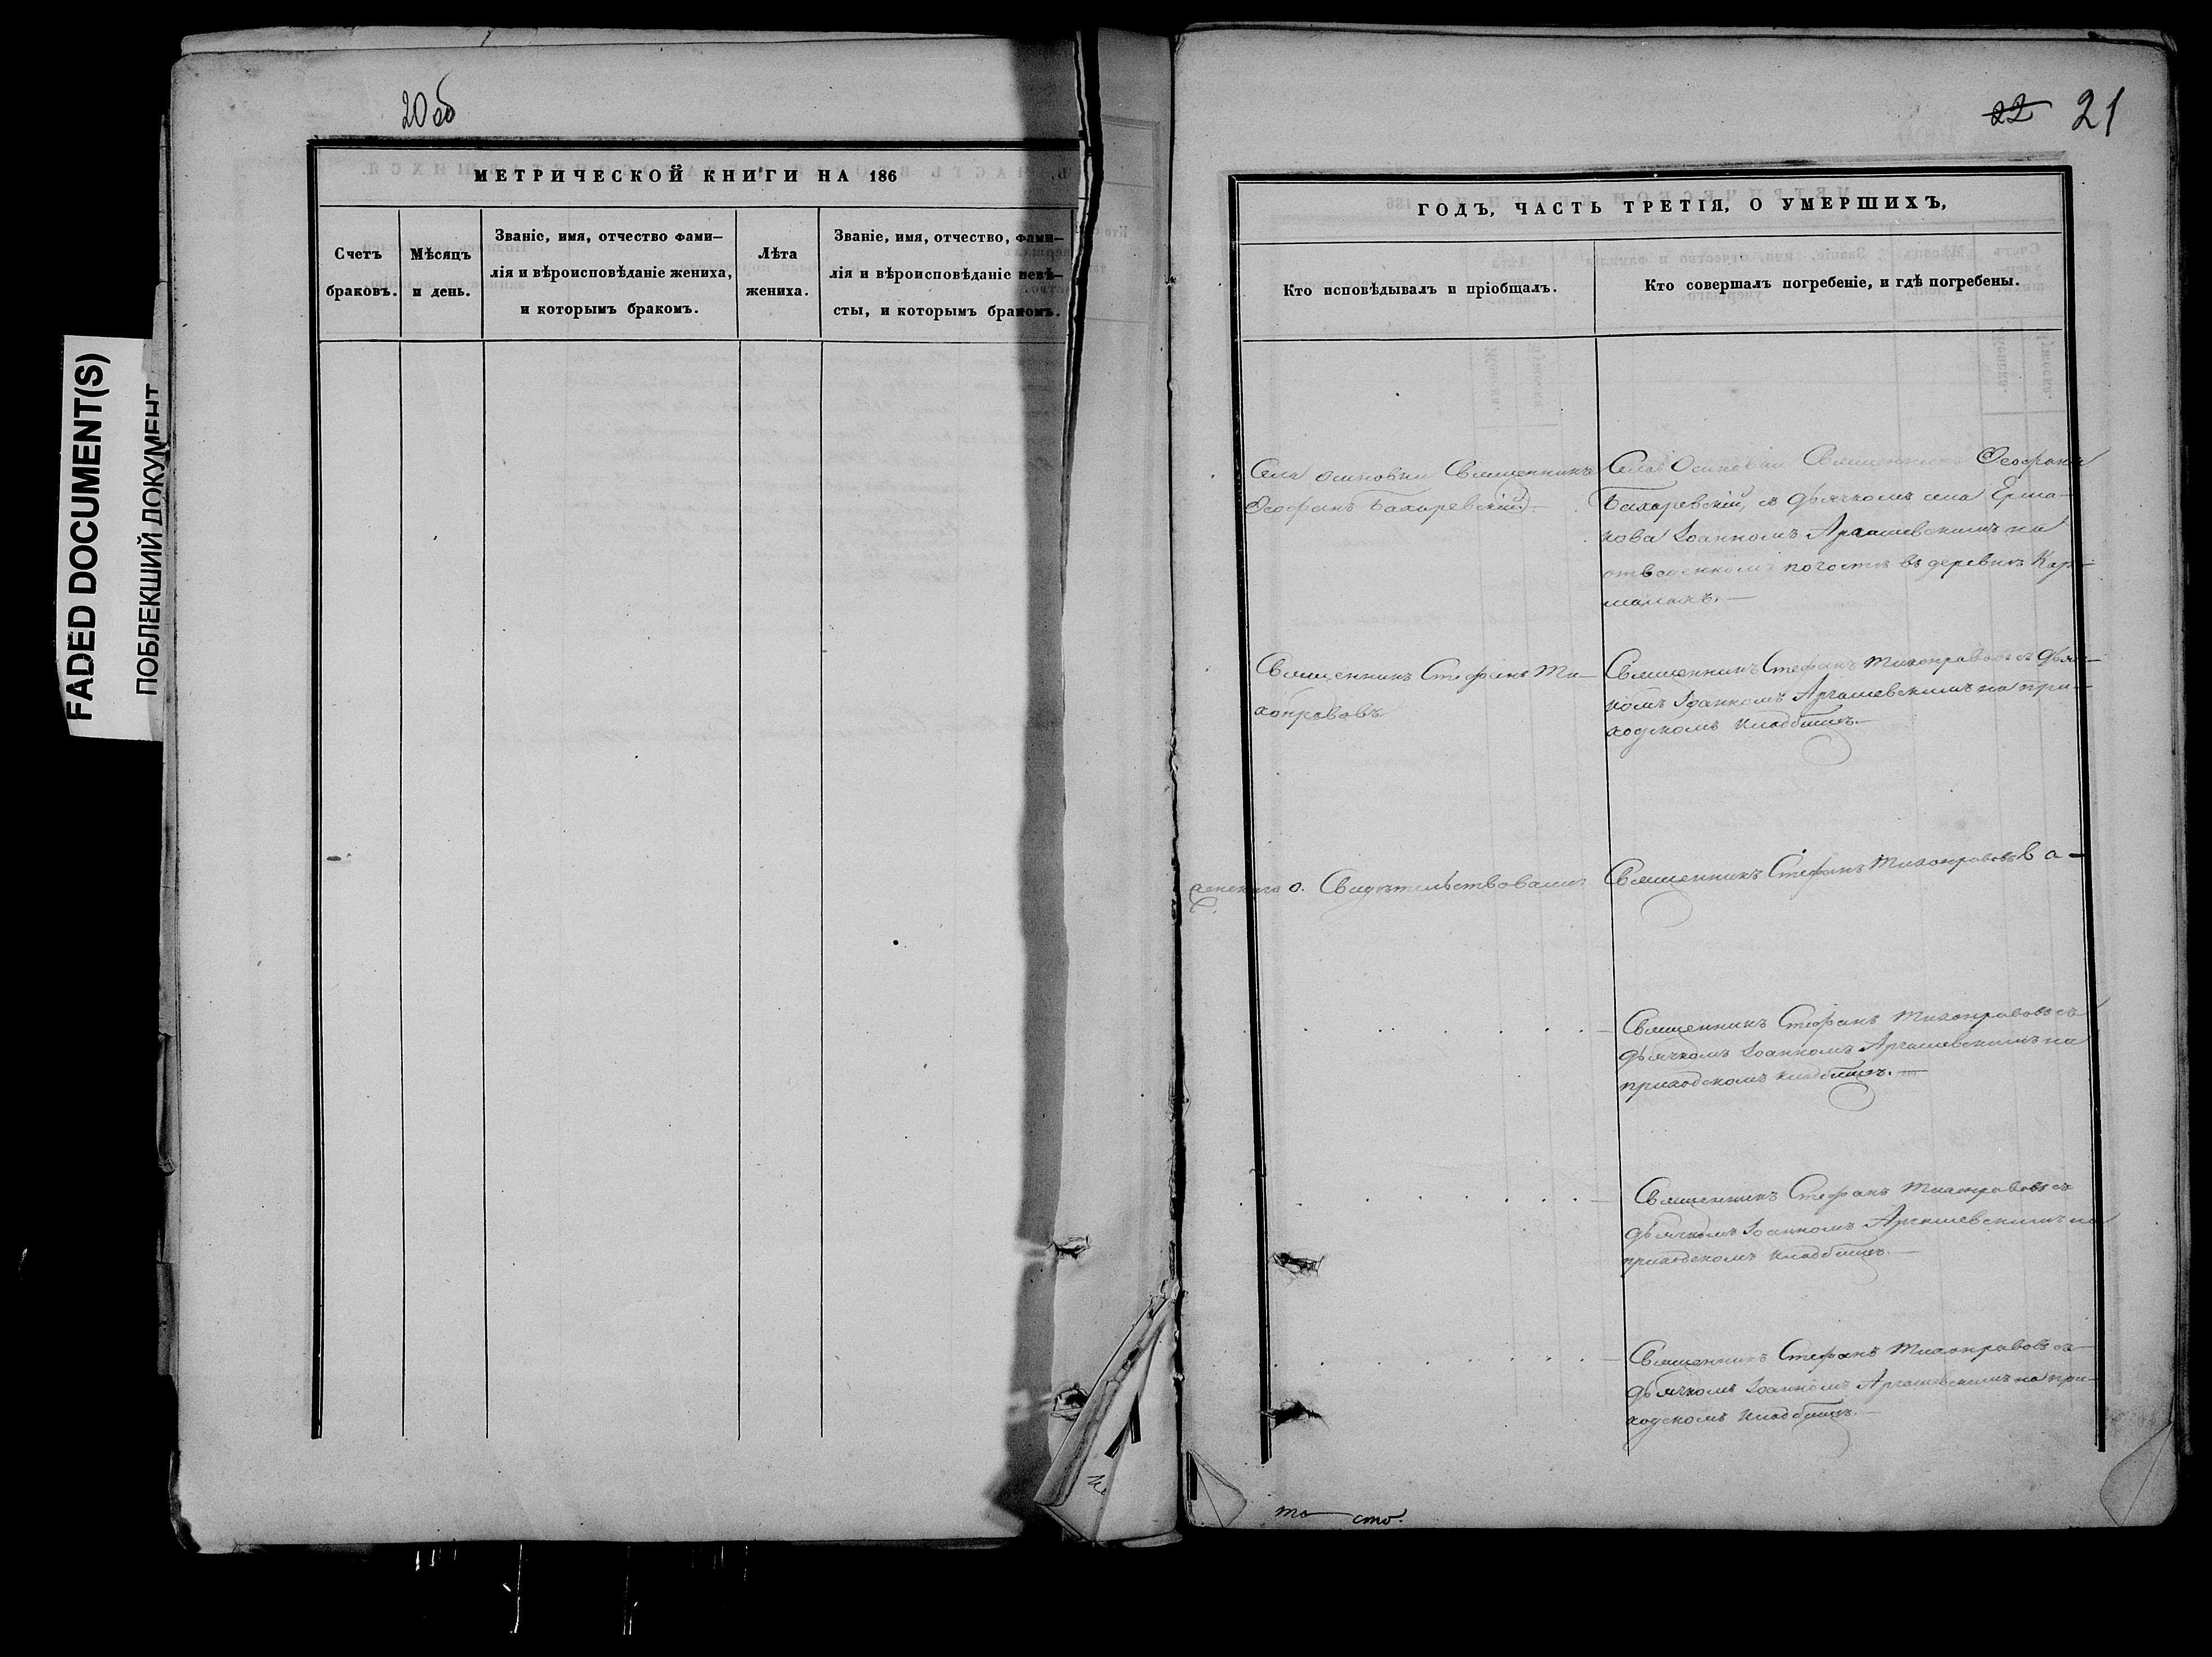 FADED DOCUMENT(S)
ПОБЛЕКШИЙ ДОКУМЕНТ
20 об
МЕТРИЧЕСКОЙ КНИГИ НА 186
Счетъ
браковъ.
Мѣсяцъ
и день.
Званіе, имя, отчество фами–
лія и вѣроисповѣданіе жениха,
и которымъ бракомъ.
Лѣта
жениха.
Званіе, имя, отчество, фами–
лія и вѣроисповѣданіе невѣ–
сты, и которымъ бракомъ.
22 21
ГОДЪ, ЧАСТЬ ТРЕТІЯ, О УМЕРШИХЪ,
Кто исповѣдывалъ и пріобщалъ.
Кто совершалъ погребеніе, и гдѣ погребены.
Села Осиновки Священникъ
Ѳеофанъ Бахаревскій.
Села Осиновки Священникъ Ѳеофанъ
Бахаревскій, съ дьячкомъ села Ерма–
кова Іоанномъ Аргашевскимъ на
отведенномъ погостѣ въ деревнѣ Кар–
малахъ.—
Священникъ Стефанъ Ти–
хонравовъ
Священникъ Стефанъ Тихонравовъ съ дьяч–
комъ Іоанномъ Аргашевскимъ на при–
ходскомъ кладбищѣ.—
о. Свидѣтельствовалъ
Священникъ Стефанъ Тихонравовъ
Священникъ Стефанъ Тихонравовъ съ
дьячкомъ Іоанномъ Аргашевскимъ на
приходскомъ кладбищѣ.—
Священникъ Стефанъ Тихонравовъ съ
дьячкомъ Іоанномъ Аргашевскимъ на
приходскомъ кладбищѣ.—
Священникъ Стефанъ Тихонравовъ съ
дьячкомъ Іоанномъ Аргашевскимъ на при–
ходскомъ кладбищѣ.—
то— сто.